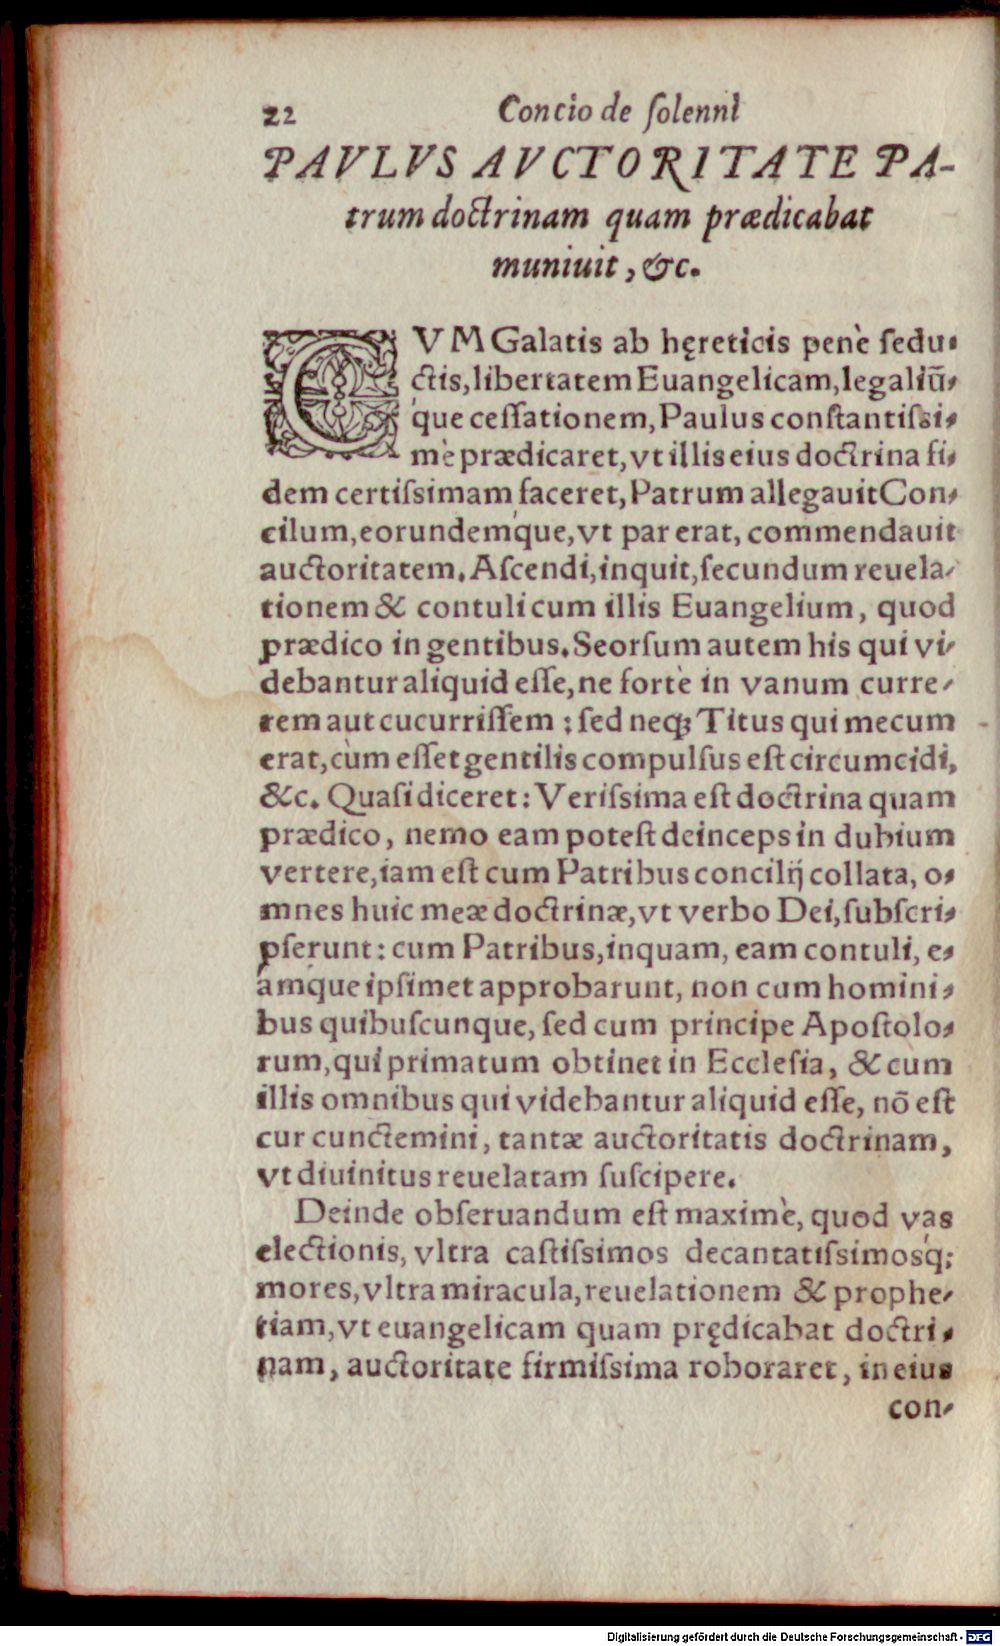 22 Concio de ſolenni
PAVLVS AVCTORITATE PA-
trum doctrinam quam prædicabat
muniuit, &c.
CVM Galatis ab hęreticis penè ſedu-
ctis, libertatem Euangelicam, legaliū-
que ceſſationem, Paulus conſtantiſsi-
mè prædicaret, vt illis eius doctrina fi-
dem certiſsimam faceret, Patrum allegauit Con-
cilum, eorundemque, vt par erat, commendauit
auctoritatem. Aſcendi, inquit, ſecundum reuela-
tionem & contuli cum illis Euangelium, quod
prædico in gentibus. Seorſum autem his qui vi-
debantur aliquid eſſe, ne fortè in vanum curre-
rem aut cucurriſſem : ſed neqꝫ Titus qui mecum
erat, cùm eſſet gentilis compulſus eſt circumcidi,
&c. Quaſi diceret: Veriſsima eſt doctrina quam
prædico, nemo eam poteſt deinceps in dubium
vertere, iam eſt cum Patribus concilij collata, o-
mnes huic meæ doctrinæ, vt verbo Dei, ſubſcri-
pſerunt: cum Patribus, inquam, eam contuli, e-
amque ipſimet approbarunt, non cum homini-
bus quibuſcunque, ſed cum principe Apoſtolo-
rum, qui primatum obtinet in Eccleſia, & cum
illis omnibus qui videbantur aliquid eſſe, nō eſt
cur cunctemini, tantæ auctoritatis doctrinam,
vt diuinitus reuelatam ſuſcipere.
Deinde obſeruandum eſt maximè, quod vas
electionis, vltra caſtiſsimos decantatiſsimosq;
mores, vltra miracula, reuelationem & prophe-
tiam, vt euangelicam quam prędicabat doctri-
nam, auctoritate firmiſsima roboraret, in eius
con-
Digitalisierung gefördert durch die Deutsche Forschungsgemeinschaft - DFG